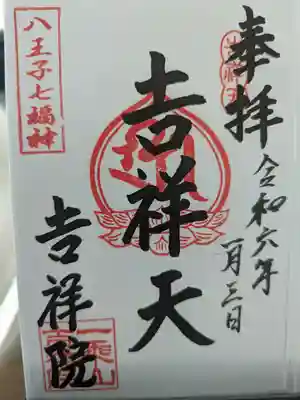 奉拝
令和六年
一月三日
吉祥天
八王子七福神
吉祥院